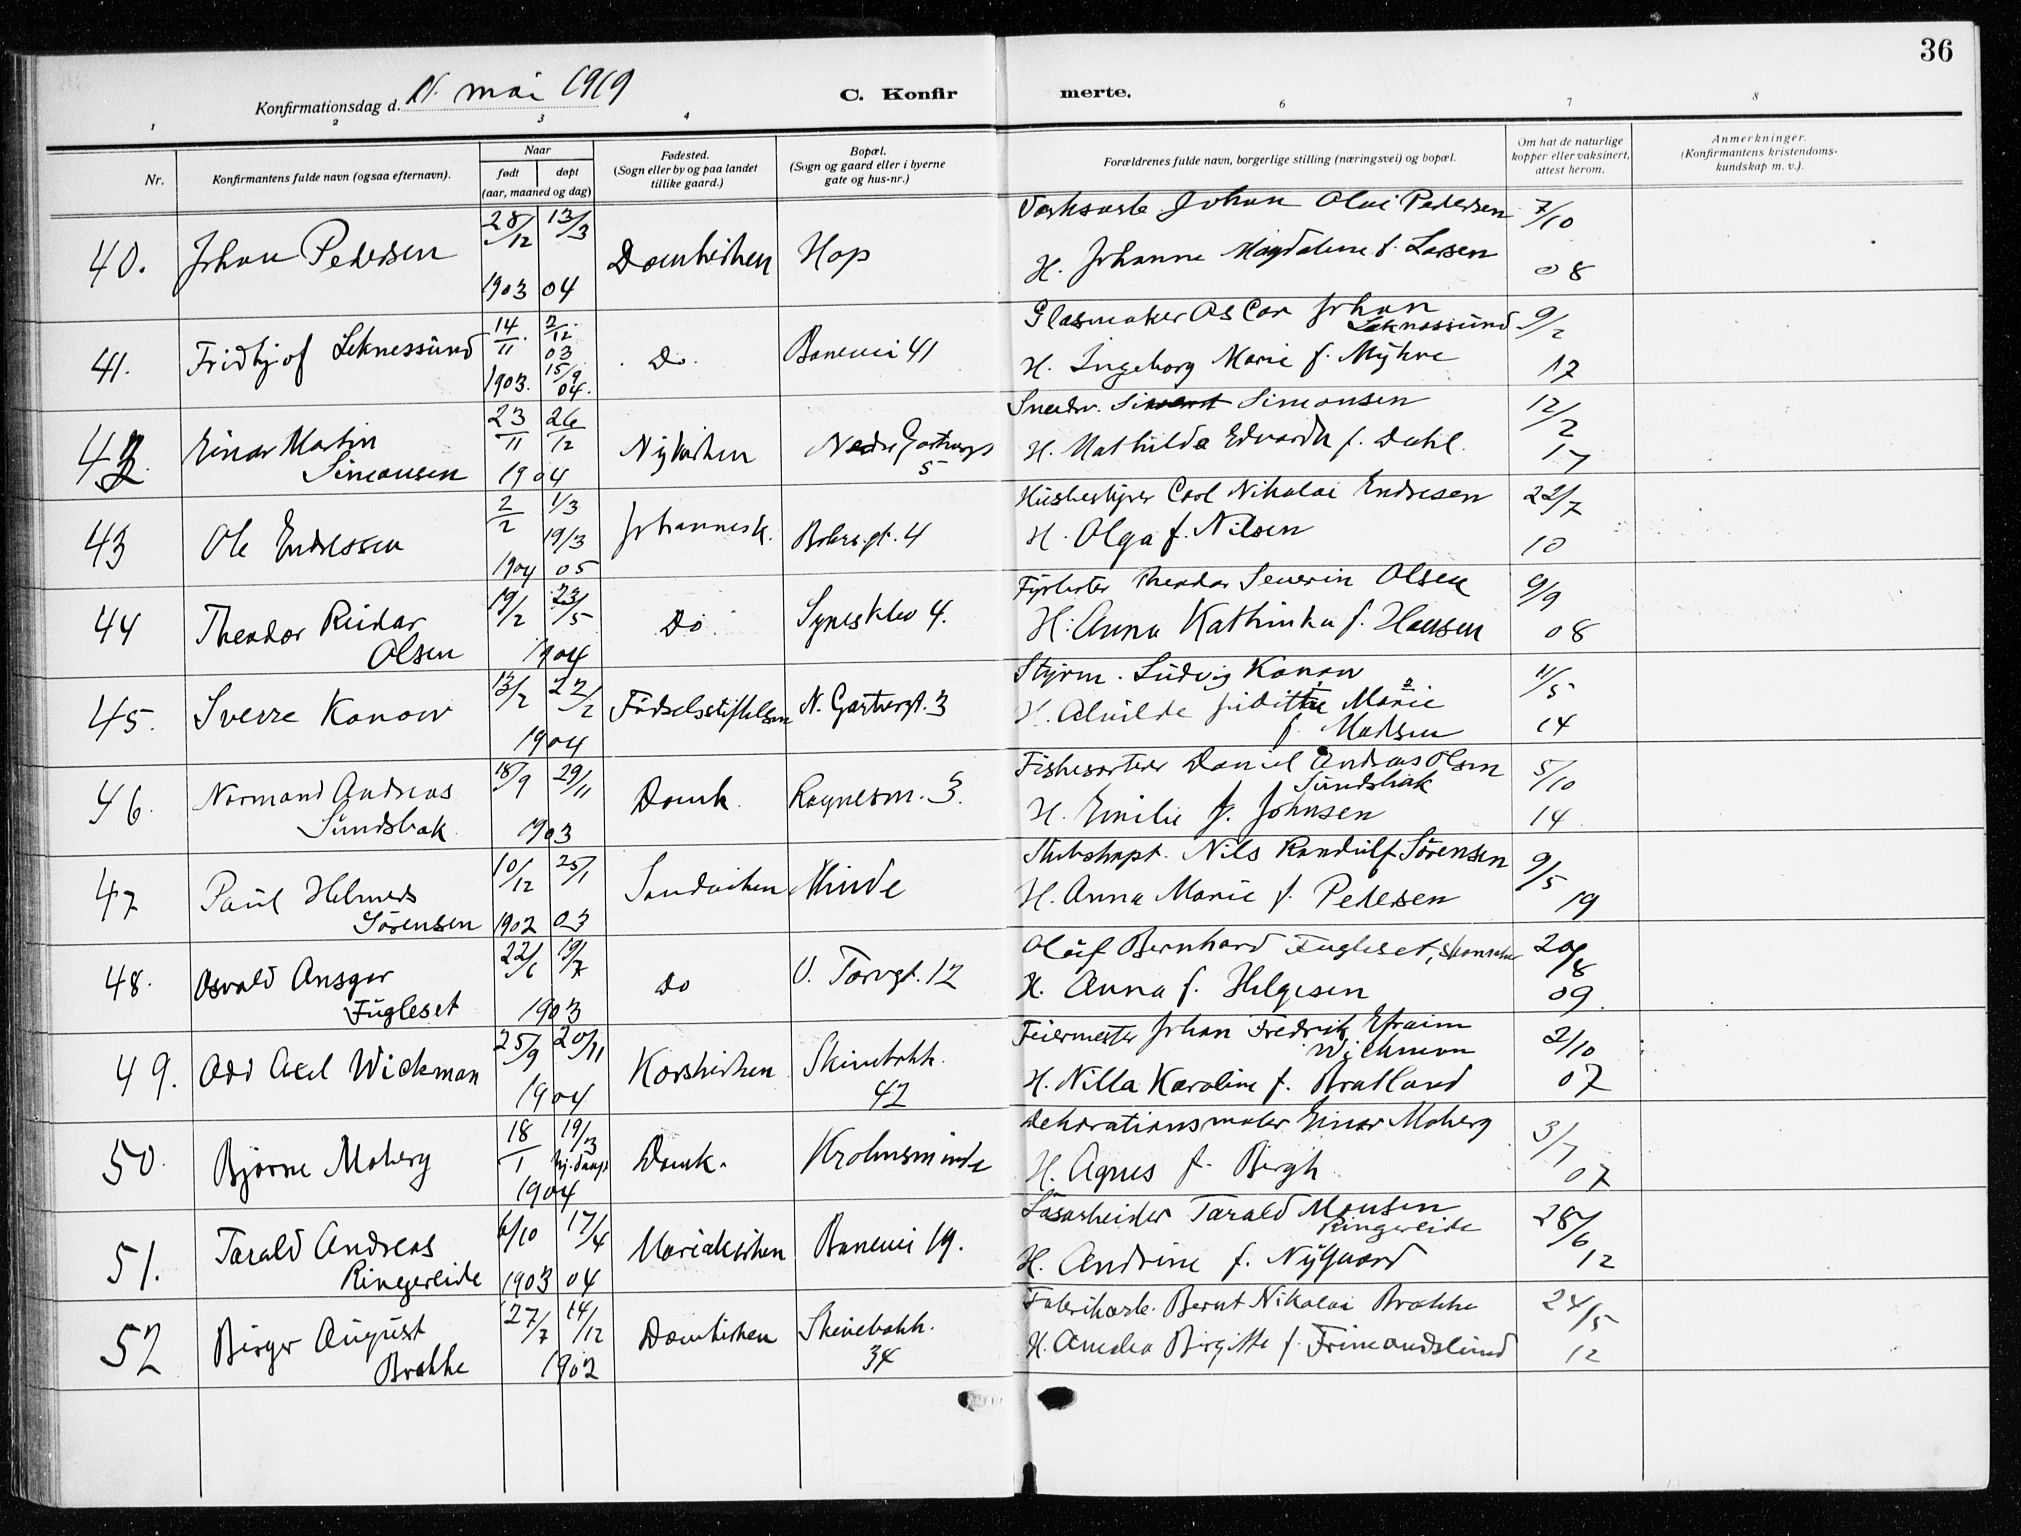 36
Konfirmationsdag d. 11. mai 1919
C. Konfir merte.
1 2 3 4 6 7 8
Nr.
Konfirmantens fulde navn (ogsaa efternavn).
Naar
født døpt
(aar, maaned og dag)
Fødested.
(Sogn eller by og paa landet
tillike gaard.)
Bopæl.
(Sogn og gaard eller i byerne
gate og hus-nr.)
Forældrenes fulde navn, borgerlige stilling (næringsvei) og bopæl.
Om hat de naturlige
kopper eller vaksinert,
attest herom.
Anmerkninger.
(Konfirmantens kristendoms-
kundskap m. v.).
40. Johan Pedersen 28/12 1903 13/3 04 Domkirken Hop
Johan Olai Pedersen 7/10
H. Johanne Magdalene f. Larsen 08
41. Fridtjof Leknessund 14/11 1903. 2/12 03 15/9 04. Do. Banevei 41
Glasmaker Oscar Johan
Leknessund 9/2
H. Ingeborg Marie f. Myhre 17
42. Einar Martin
Simonsen 23/11 26/12 1904 Nykirken Nedre Gartnergt
5
Snedkr. Simonsen 12/2
H. Mathilde Edvarda f. Dahl. 17
43 Ole Endresen 2/2 1904 1/3 19/3 05 Johannesk. 4
Husbestyrer Carl Nikolai Endresen 22/7
H. Olga f. Nilsen 10
44 Theodor Reidar
Olsen 19/2 23/5 1904 Do Synesklev 4.
Fyrbøter Theodor Severin Olsen 9/9
H. Anna Kathinka f. Hansen 08
45. Sverre Konow 13/2 22/2 1904 Fødselsstiftelsen N. Gartnergt. 3
Styrm. Ludvig Konow 11/5
H. Alvilde Marie
f. Madsen 14
46. Normand Andreas
Sundsbak 18/9 29/11 1903 Domk. Rognesm. 3.
Fiskesorterer Daniel Andreas Olsen
Sundsbak 5/10
H. Emilie f. Johnsen 14
47 Paul Helmers
Sørensen 10/12 1902 25/1 03 Sandviken Minde
Skibskapt. Nils Randulf Sørensen 9/5
H. Anna Marie f. Pedersen 19
48. Osvald Ansgar
Fugleset 22/6 19/7 1903 Do V. Torvgt. 12
Oluf Bernhard Fugleset, 20/8
H. Anna f. Helgesen 09.
49. Odd Axel Wickman 25/9 20/11 1904 Korskirken Skivebakk.
42
Feiermester Johan Fredrik Efraim
Wickman 2/10
H. Nilla Karoline f. Bratland 07
50. Bjarne Moberg 18/1 19/3 hj.døpt 1904 Domk. Krohnsminde
Dekorationsmaler Einar Moberg 3/7
H. Agnes f. Bergh 07
51. Tarald Andreas
Ringereide 6/10 1903 17/4 04 Mariakirken Banevei 19.
Løsarbeider Tarald Monsen
Ringereide 28/6
H. Andrine f. Nygaard 12
52 Birger August
Brakke 27/7 14/12 1902 Domkirken Skivebakk.
34
Fabrikarb. Bernt Nikolai Brakke 24/5
H. Amalia Birgitte f. Frimandslund 12